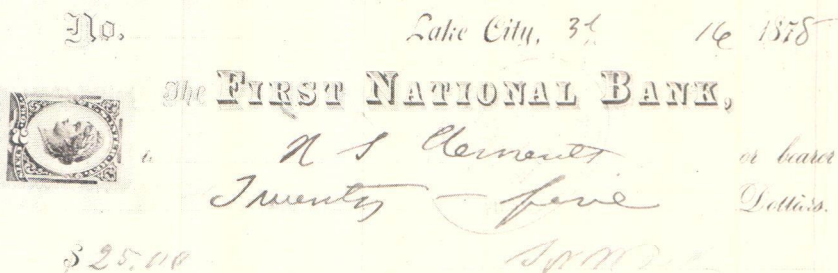 No. Lake City, 3d 16 1878
The FIRST NATIONAL BANK,
to N S Clements or bearer
Twenty-five Dollars.
$25.00